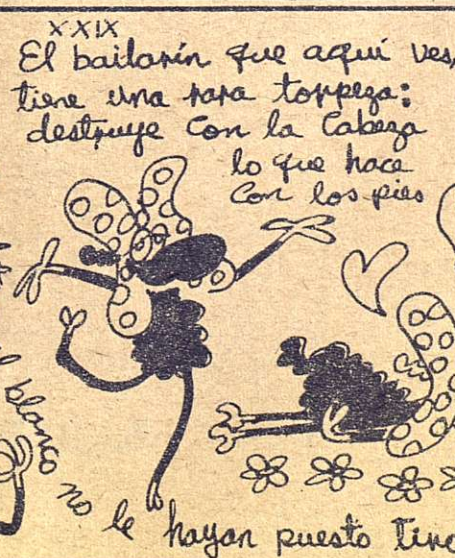 XXIX
El bailarín que aquí ves,
tiene una rara torpeza:
destruye con la Cabeza
lo que hace
Con los pies
blanco
no le hayan puesto